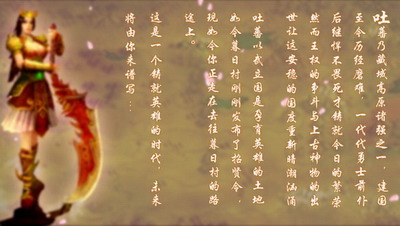 吐蕃乃藏域高原诸强之一，建国
至今历经磨难，一代代勇士前仆
后继悍不畏死才铸就今日的繁荣
然而王权的争斗与上古神物的出
世让这安稳的国度重新暗潮汹涌
吐蕃以武立国是孕育英雄的土地
如今暮日村刚刚发布了招贤令，
现如今你正走在去往暮日村的路
途上。
这是一个铸就英雄的时代，未来
将由你来谱写……